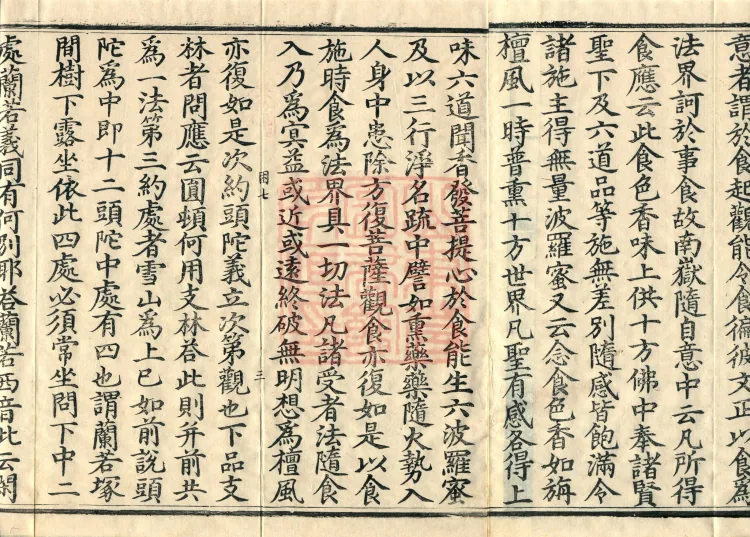 意者謂於食起觀能令食徧彼文正以食爲
法界訶於事食故南嶽隨自意中云凡所得
食應云此食色香味上供十方佛中奉諸賢
聖下及六道品等施無差別隨感皆飽滿令
諸施主得無量波羅蜜又云念食色香如旃
檀風一時普熏十方世界凡聖有感各得上
味六道聞香發菩提心於食能生六波羅蜜
及以三行淨名疏中譬如熏藥藥隨火勢入
人身中患除方復菩薩觀食亦復如是以食
施時食爲法界具一切法凡諸受者法隨食
入乃爲冥益或近或遠終破無明想爲檀風
困七 三
亦復如是次約頭陀義立次第觀也下品支
林者問應云圓頓何用支林答此則并前共
爲一法第三約處者雪山爲上已如前說頭
陀爲中即十二頭陀中處有四也謂蘭若塚
間樹下露坐依此四處必須常坐問下中二
處蘭若義同有何別耶答蘭若西音此云閑